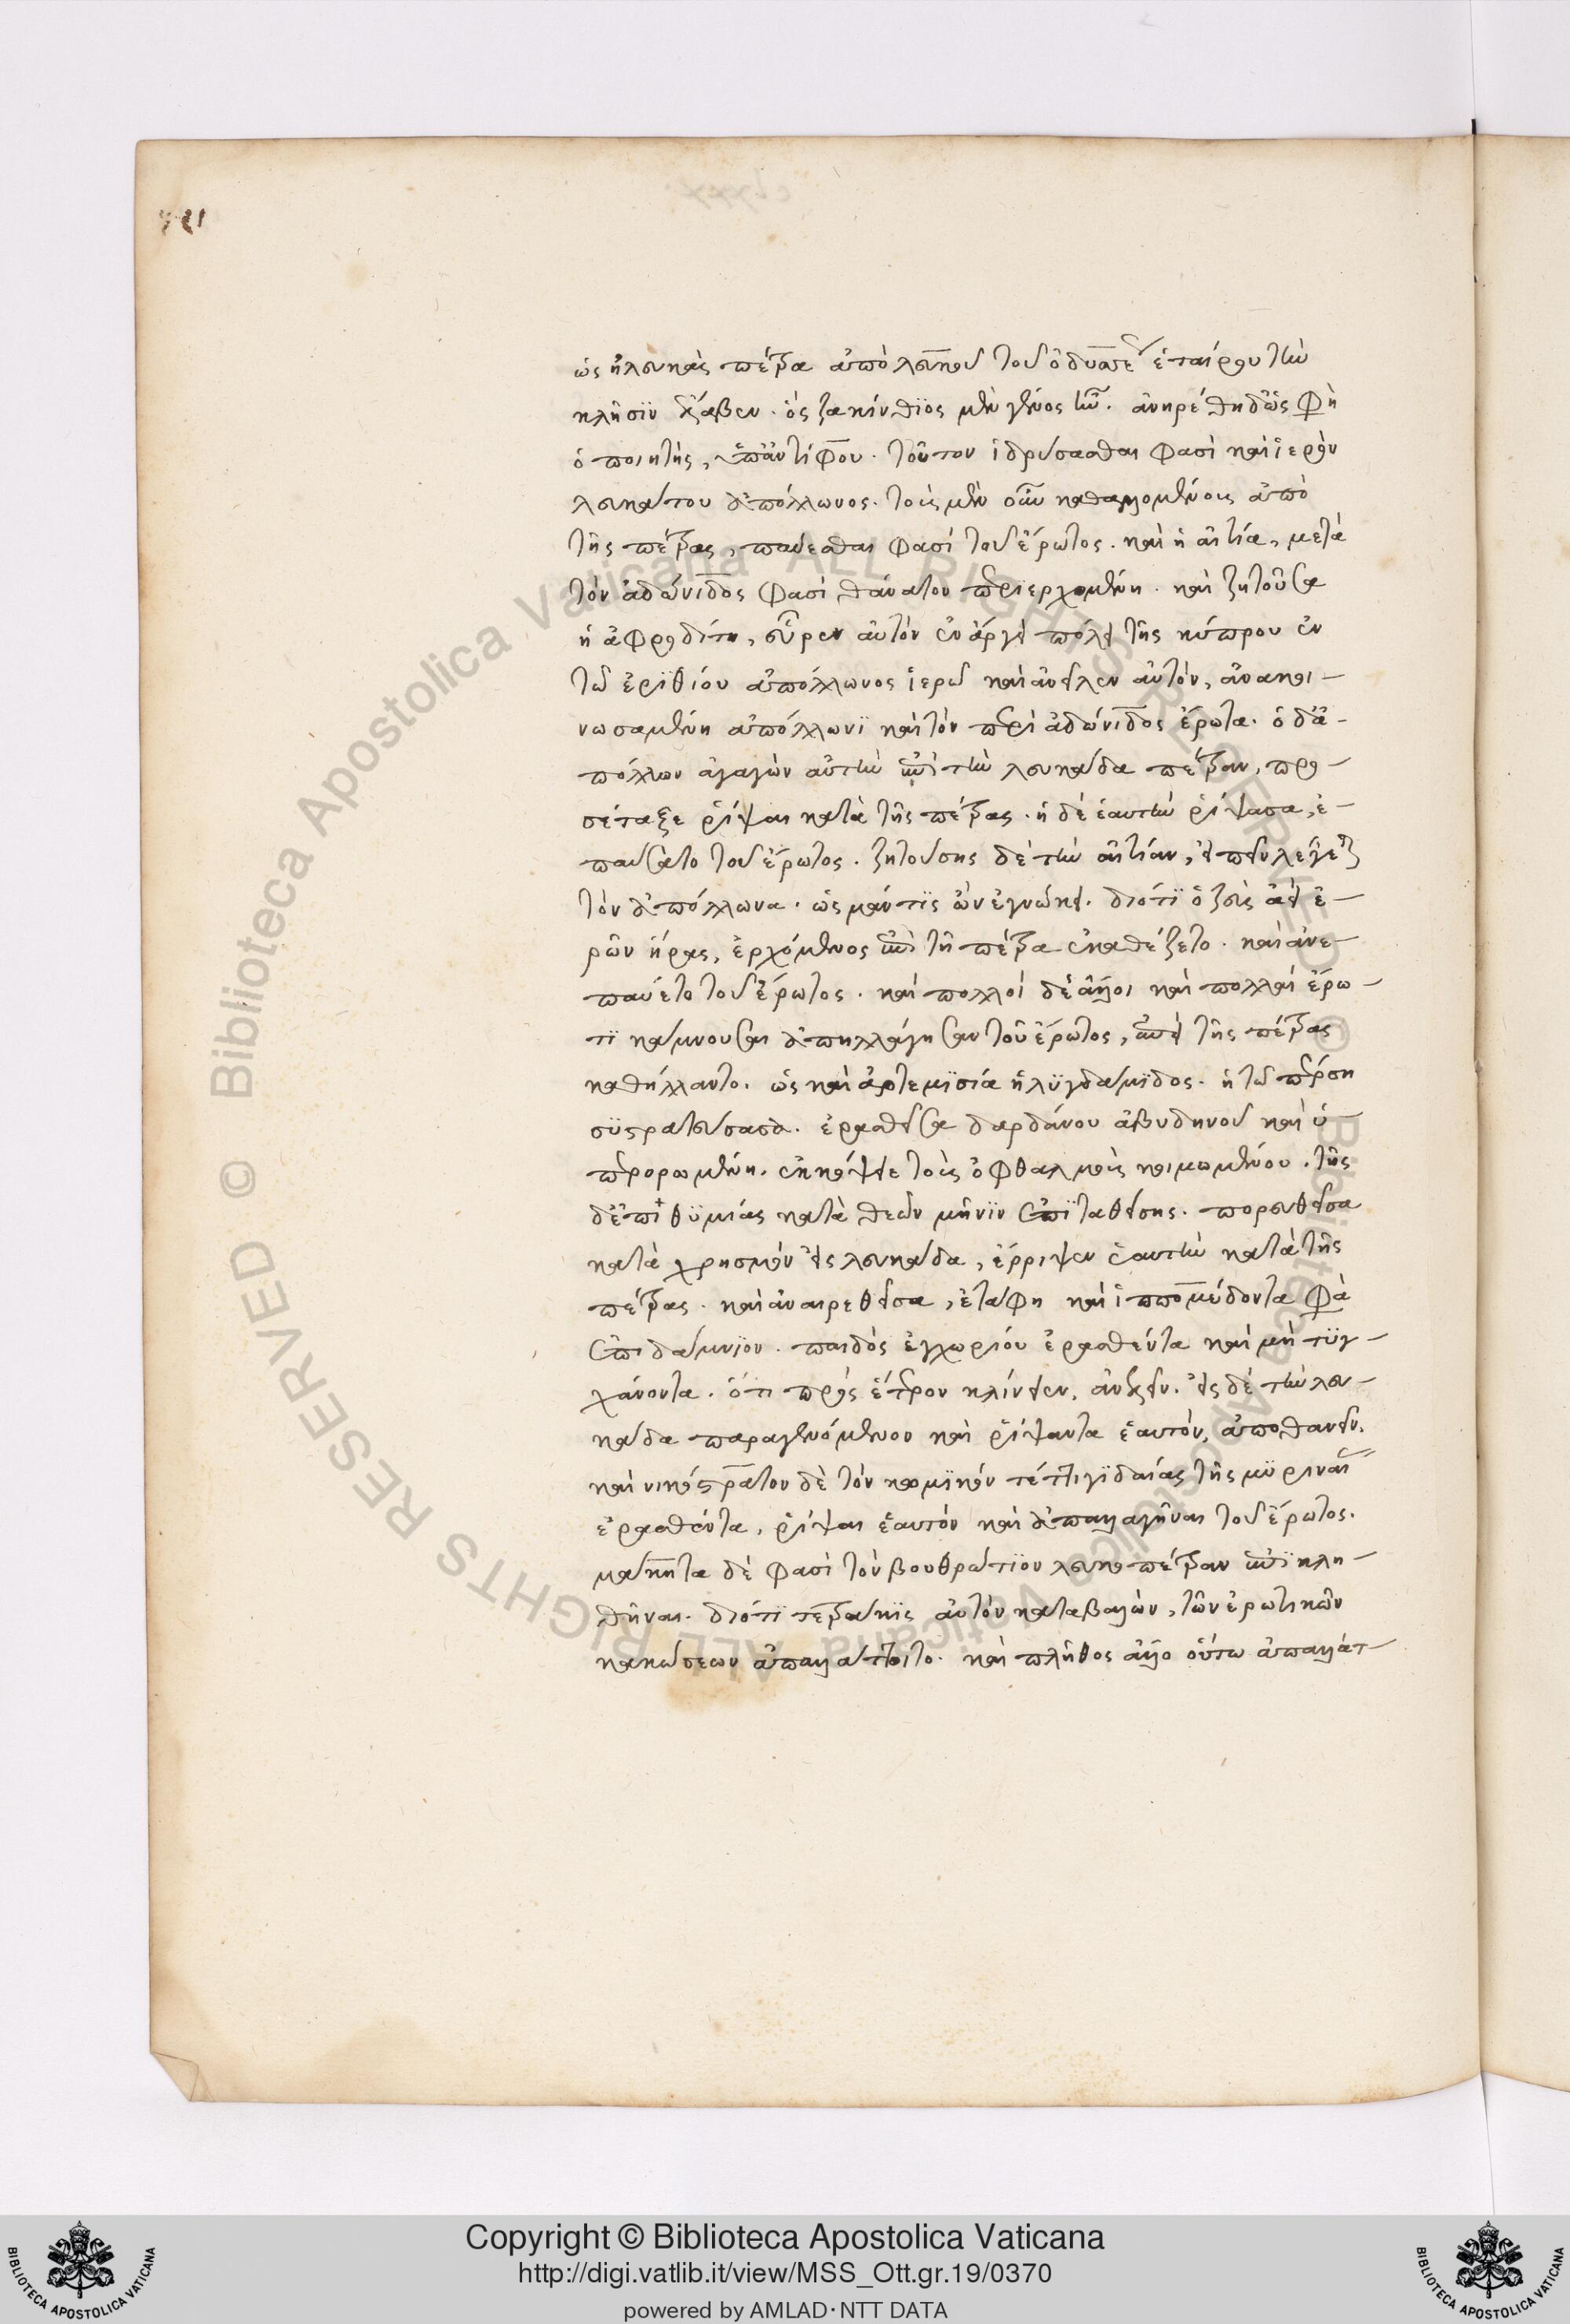 ὡς ἡ λευκὰς πέτρα ἀπὸ λευκοῦ τοῦ ὀδυσσέως ἑταίρου τὴν
κλῆσιν ἔλαβεν. ὃς ζακίνθιος μὲν γένος ἦν. ἀνηρέθη δ' ὥς φη
ὁ ποιητής, ὑπ' ἀντίφου. τοῦτον ἱδρύσασθαι φασὶ καὶ ἱερὸν
λευκάτου ἀπόλλωνος. τοὺς μὲν οὖν καθαλλομένους ἀπὸ
τῆς πέτρας, παύεσθαι φασὶ τοῦ ἔρωτος. καὶ ἡ αἰτία, μετὰ
τὸν ἀδώνιδος φασὶ θάνατον περιερχομένη. καὶ ζητοῦσα
ἡ ἀφροδίτη, εὗρεν αὐτὸν ἐν ἄργει πόλει τῆς κύπρου ἐν
τῶ ἐριθίου ἀπόλλωνος ἱερῶ καὶ ἀνεῖλεν αὐτὸν, ἀνακοι-
νωσαμένη ἀπόλλωνι καὶ τὸν περὶ ἀδώνιδος ἔρωτα. ὁ δ' ἀ-
πόλλων ἀγαγὼν αὐτὴν ἐπὶ τὴν λευκάδα πέτραν, προ-
σέταξε ῥίψαι κατὰ τῆς πέτρας. ἡ δὲ ἑαυτὴν ῥίψασα, ἐ-
παύσατο τοῦ ἔρωτος. ζητούσης δὲ τὴν αἰτίαν, εἰπεῖν λέγεται
τὸν ἀπόλλωνα. ὡς μάντις ὢν ἐγνώκει. διότι ὁ ζεὺς ἀεὶ ἐ-
ρῶν ἥρας, ἐρχόμενος ἐπὶ τῆ πέτρα ἐκαθέζετο. καὶ ἀνε-
παύετο τοῦ ἔρωτος. καὶ πολλοὶ δὲ ἄλλοι καὶ πολλαὶ ἔρω-
τι κάμνουσαι ἀπηλλάγησαν τοῦ ἔρωτος, ἐπεὶ τῆς πέτρας
καθήλλαντο. ὡς καὶ ἀρτεμισία ἡ λυγδάμιδος. ἡ τῶ πέρση
συστρατεύσασα. ἐρασθεῖσα δαρδάνου ἀβυδηνοῦ καὶ ὑ
περορωμένη. ἐκκόψειε τοὺς ὀφθαλμοὺς κοιμωμένου. τῆς
δὲ ἐπιθυμίας κατὰ θεῶν μῆνιν ἐπιταθείσης. πορευθεῖσα
κατὰ χρησμὸν εἰς λευκάδα, ἔρριψεν ἑαυτὴν κατὰ τῆς
πέτρας. καὶ ἀναιρεθεῖσα, ἐτάφη καὶ ἱππομέδοντα φα
ἐπιδάμνιον. παιδὸς ἐγχωρίου ἐρασθέντα καὶ μὴ τυγ-
χάνοντα. ὅτι πρὸς ἕτερον κλίνειεν, ἀνελεῖν. εἰς δὲ τὴν λευ-
κάδα παραγενόμενον καὶ ῥίψαντα ἑαυτὸν, ἀποθανεῖν.
καὶ νικόστρατον δὲ τὸν κωμικὸν τέττιγιδαίας τῆς μυριναί
ἐρασθέντα, ῥίψαι ἑαυτὸν καὶ ἀπαλλαγῆναι τοῦ ἔρωτος.
μάκητα δὲ φασὶ τὸν βουθρώτιον λευκοπέτραν ἐπικλη-
θῆναι. διότι τετράκις αὐτὸν καταβαλὼν, τῶν ἐρωτικῶν
κακώσεων ἀπαλλάττοιτο. καὶ πλῆθος ἄλλο οὕτω ἀπαλλάτ-